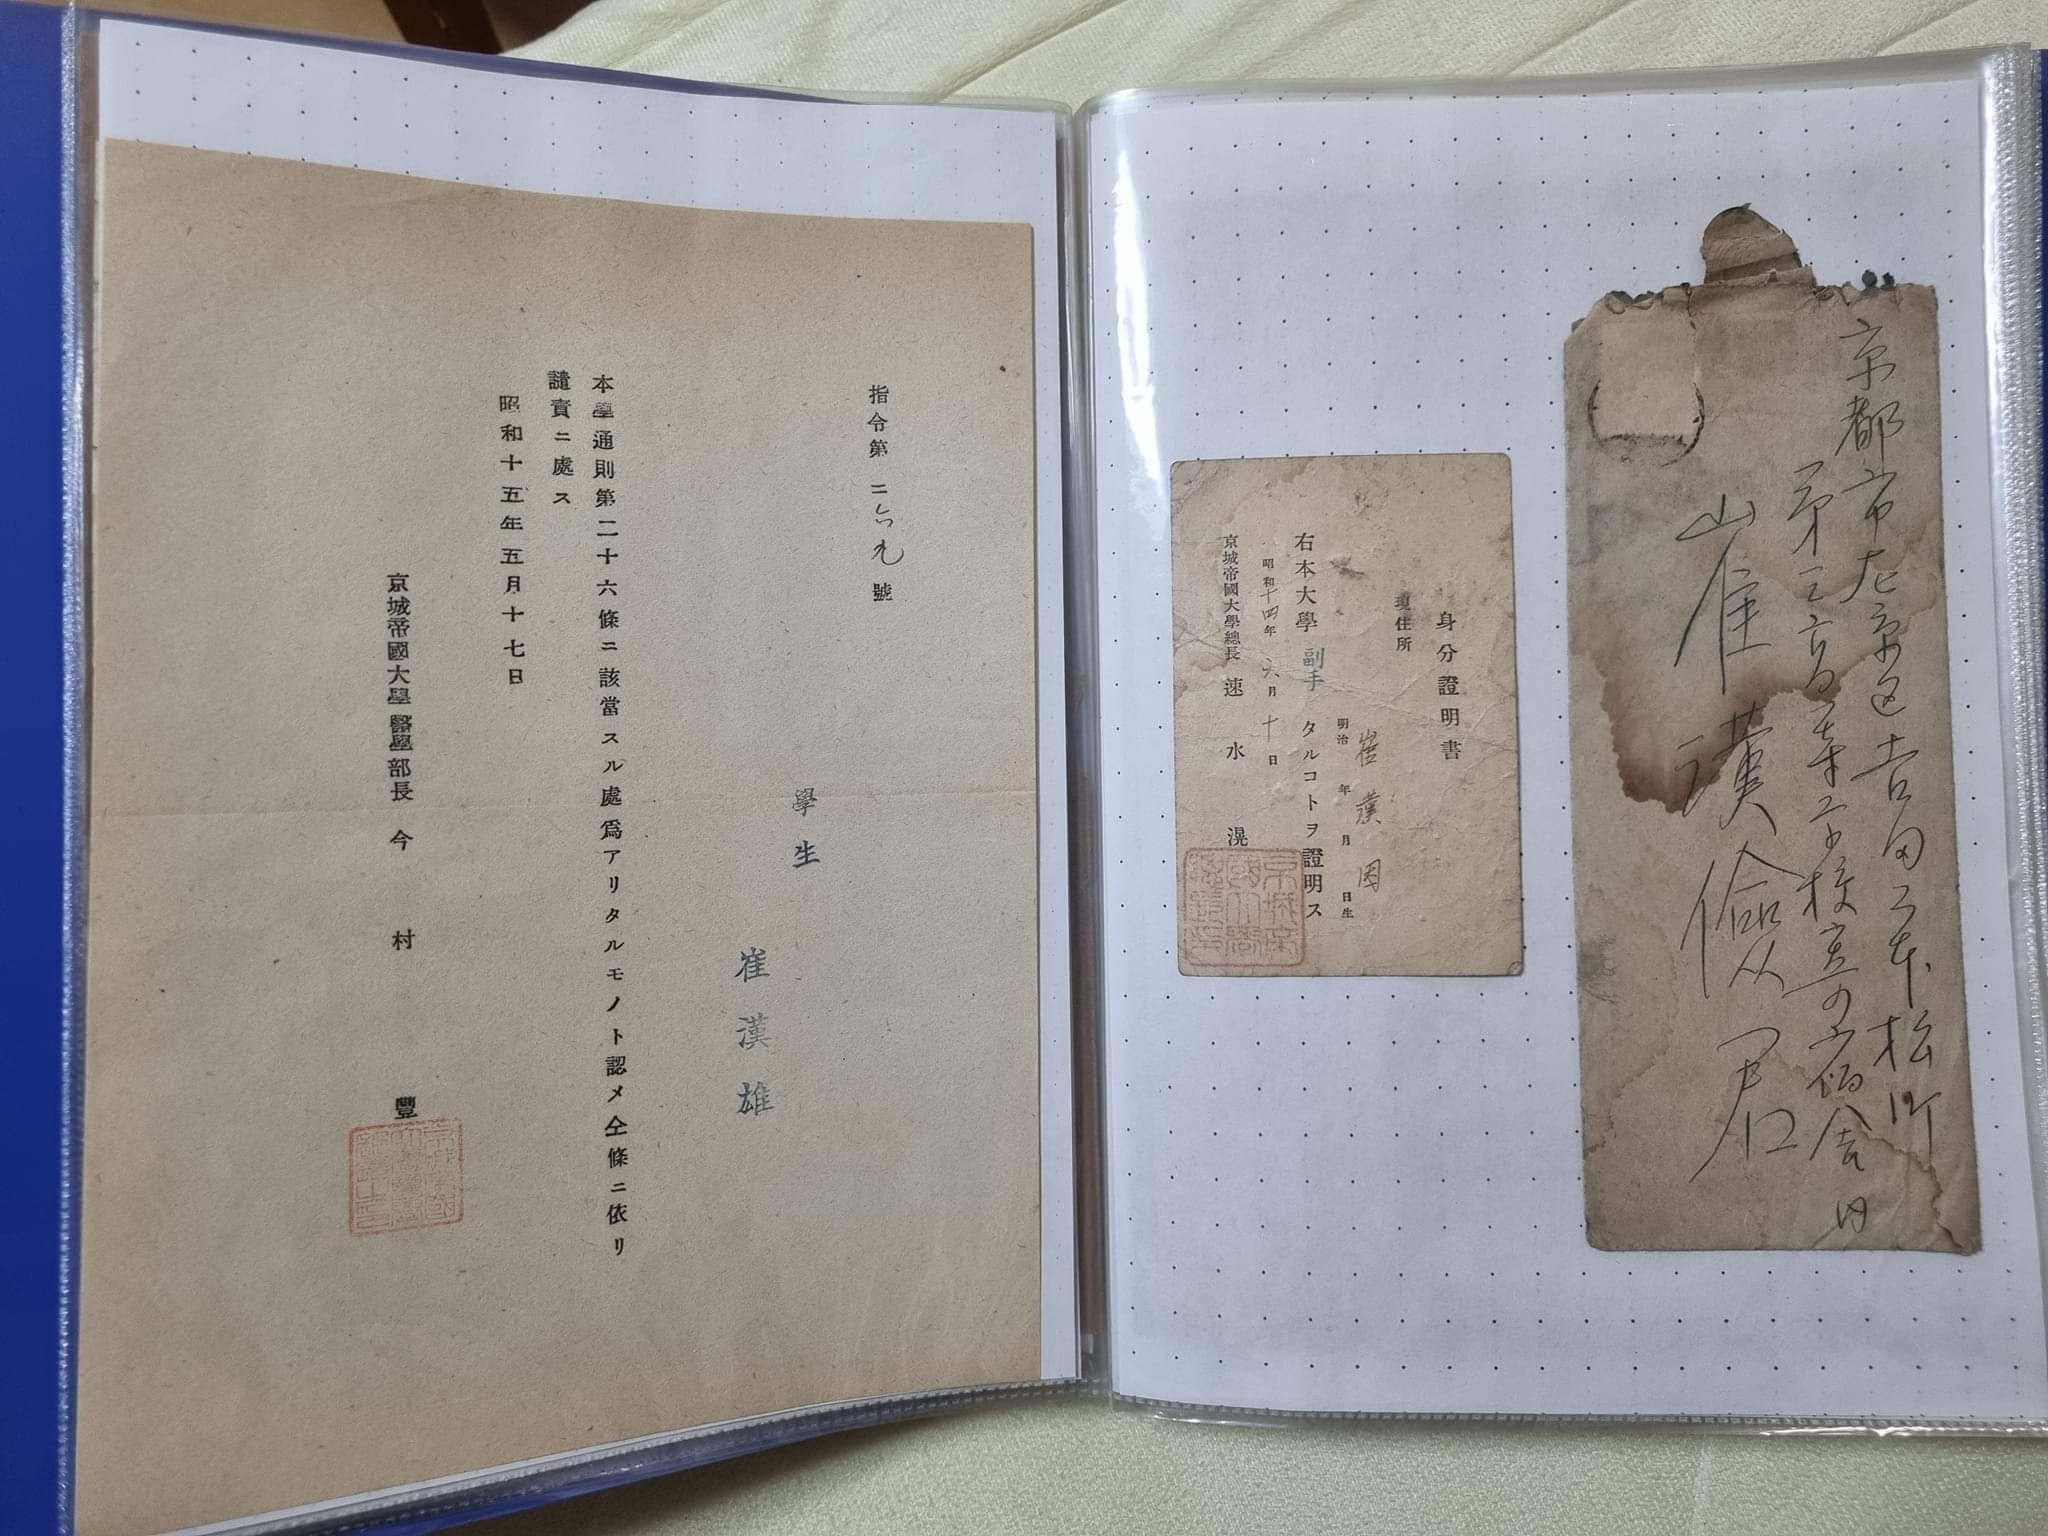 指令第二六九號
學生
崔漢雄
本學通則第二十六條ニ該當スル處爲アリタルモノト認メ仝條ニ依リ
譴責ニ處ス
昭和十五年五月十七日
京城帝國大學醫學部長 今村 豐
身分證明書
現住所
崔漢
明治 年 月 日生
右本大學副手タルコトヲ證明ス
昭和十四年六月十日
京城帝國大學總長 速水 滉
京都市左京區吉田二本松町
第三高等學校寄宿舍内
崔漢儉君